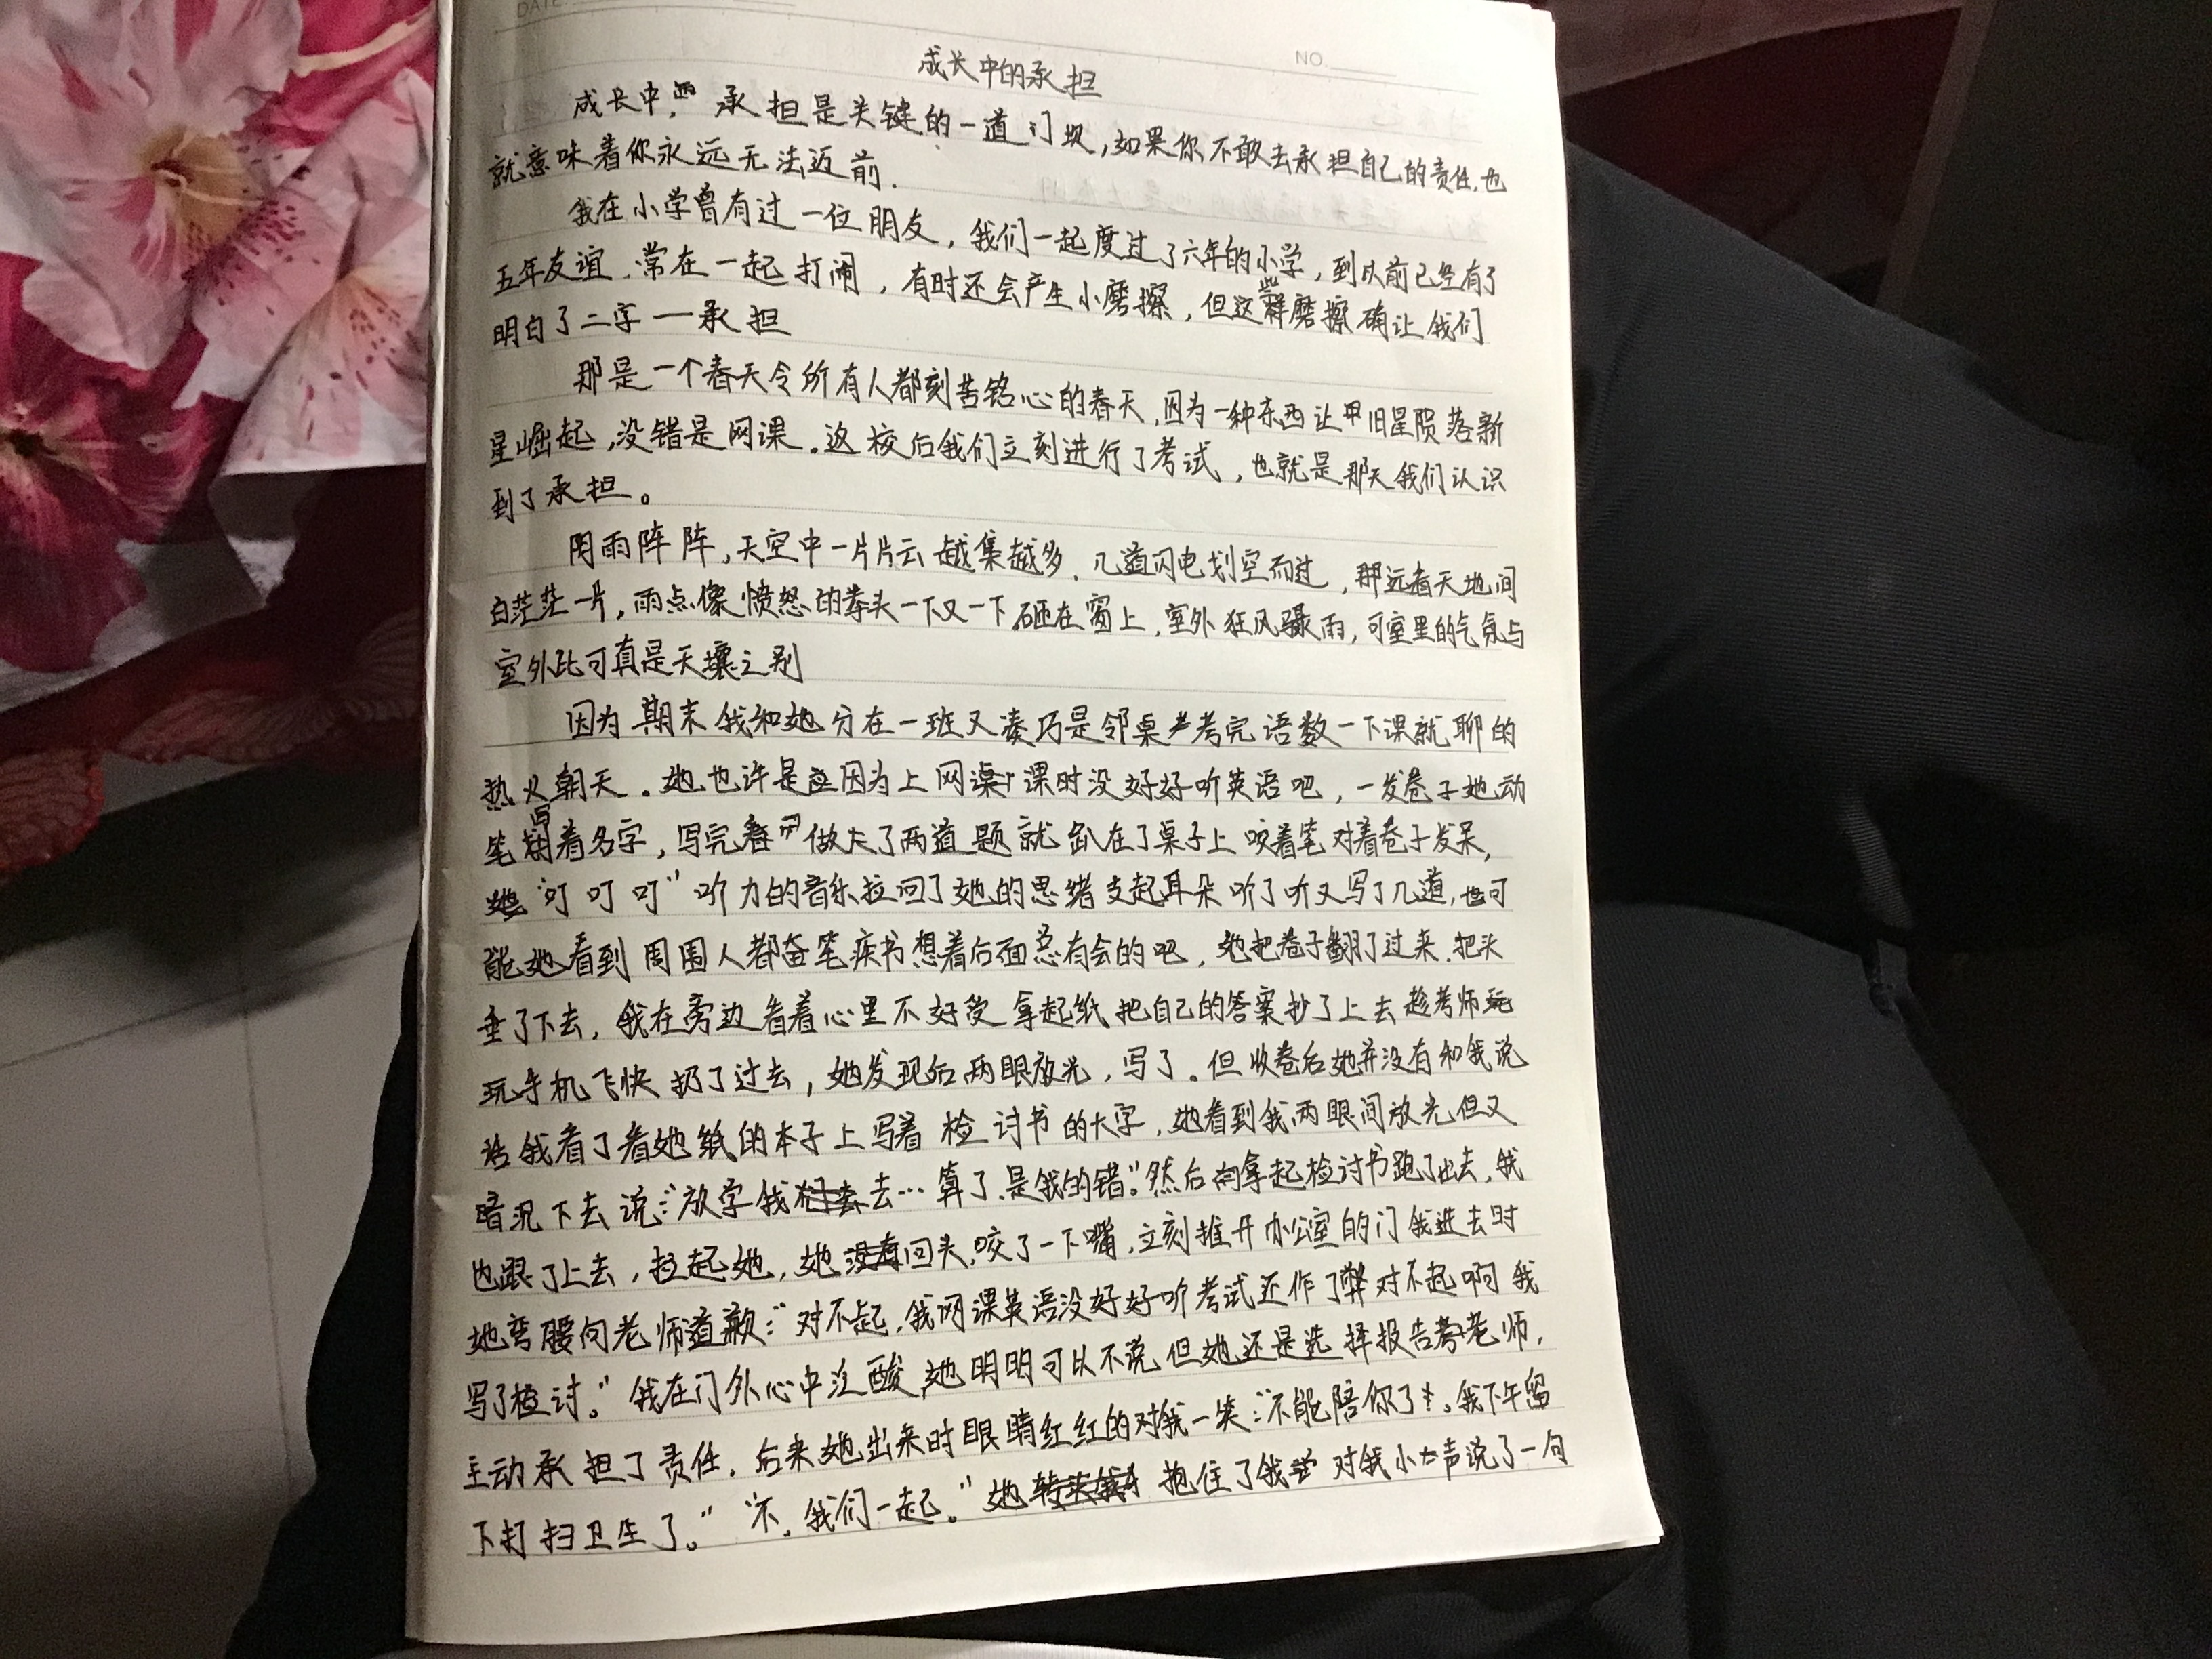 DATE
NO.
成长中的承担
成长中，承担是关键的一道门坝，如果你不敢去承担自己的责任，也
就意味着你永远无法迈前．
我在小学曾有过一位朋友，我们一起度过了六年的小学，到以前已经有了
五年友谊．常在一起打闹，有时还会产生小磨擦，但这些磨擦确让我们
明白了二字一承担
那是一个春天令所有人都刻苦铭心的春天，因为一种东西让旧星陨落新
星崛起，没错是网课。返校后我们立刻进行了考试，也就是那天我们认识
到了承担。
阴雨阵阵，天空中一片片云越集越多．几道闪电划空而过，那远看天地间
白茫茫一片，雨点像愤怒的拳头一下又一下砸在窗上，室外狂风骤雨，可室里的气氛与
室外比可真是天壤之别
因为期末我和她分在一班又凑巧是邻桌考完语数一下课就聊的
热火朝天。她也许是因为上网课时没好好听英语吧，一发卷子她动
笔写着名字，写完做了两道题就趴在了桌子上咬着笔对着卷子发呆，
“叮叮叮”听力的音乐拉回了她的思绪支起耳朵听了听又写了几道，可
能她看到周围人都奋笔疾书想着后面总有会的吧，她把卷子翻了过来．把头
垂了下去，我在旁边看着心里不好受拿起纸把自己的答案抄了上去趁考师
玩手机飞快扔了过去，她发现后两眼放光，写了。但收卷后她并没有和我说
话我看了看她纸的本子上写着检讨书的大字，她看到我两眼间放光但又
暗沉下去说：“放学我去…算了．是我的错。”然后拿起检讨书跑了出去，我
也跟了上去，拉起她，她回头，咬了一下嘴，立刻推开办公室的门我进去时
她弯腰向老师道歉：“对不起，我网课英语没好好听考试还作了弊对不起啊我
写了检讨。”我在门外心中泛酸，她明明可以不说但她还是选择报告老师，
主动承担了责任．后来她出来时眼睛红红的对我一笑：“不能陪你了。我下午留
下打扫卫生了。”“不．我们一起。”她抱住了我对我小声说了一句